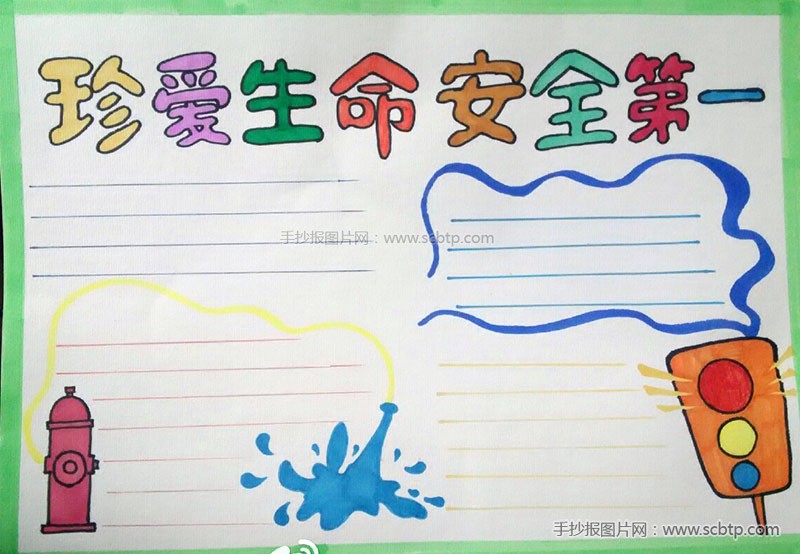 珍爱生命 安全第一
手抄报图片网：www.scbtp.com
手抄报图片网：www.scbtp.com